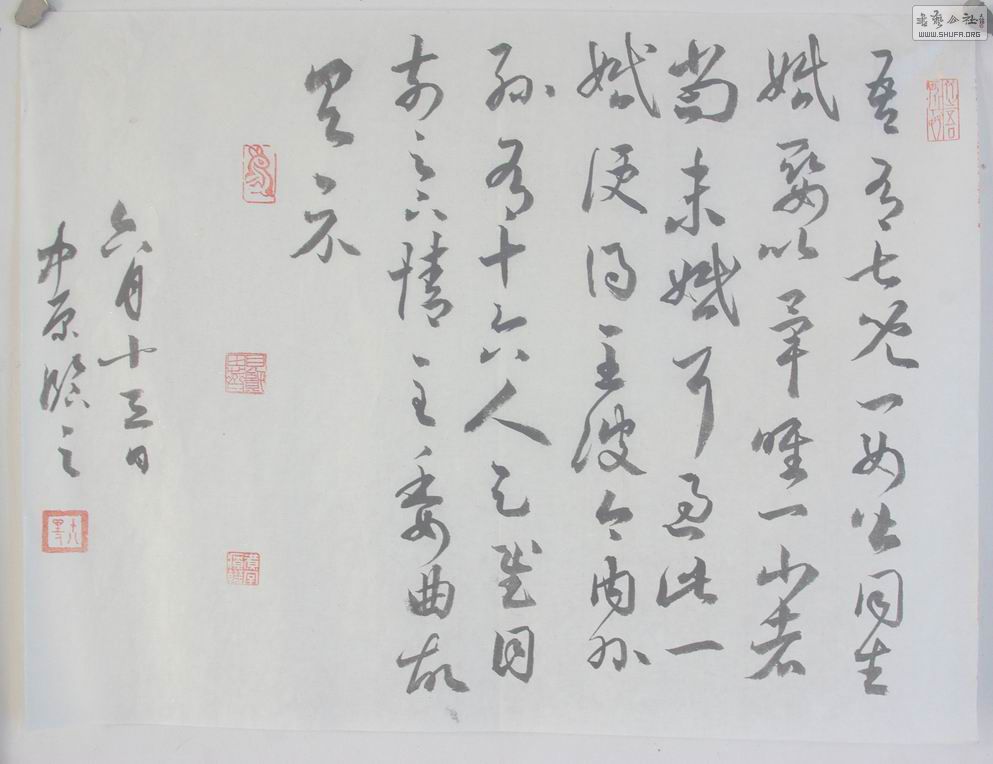 吾有七兒一女皆同生
婚娶以畢唯一小者
尚未婚耳過此一
婚便得至彼今内外
孫有十六人足慰目
前足下情至委曲故
具示
六月十五日
中原臨之
書藝公社
WWW.SHUFA.ORG